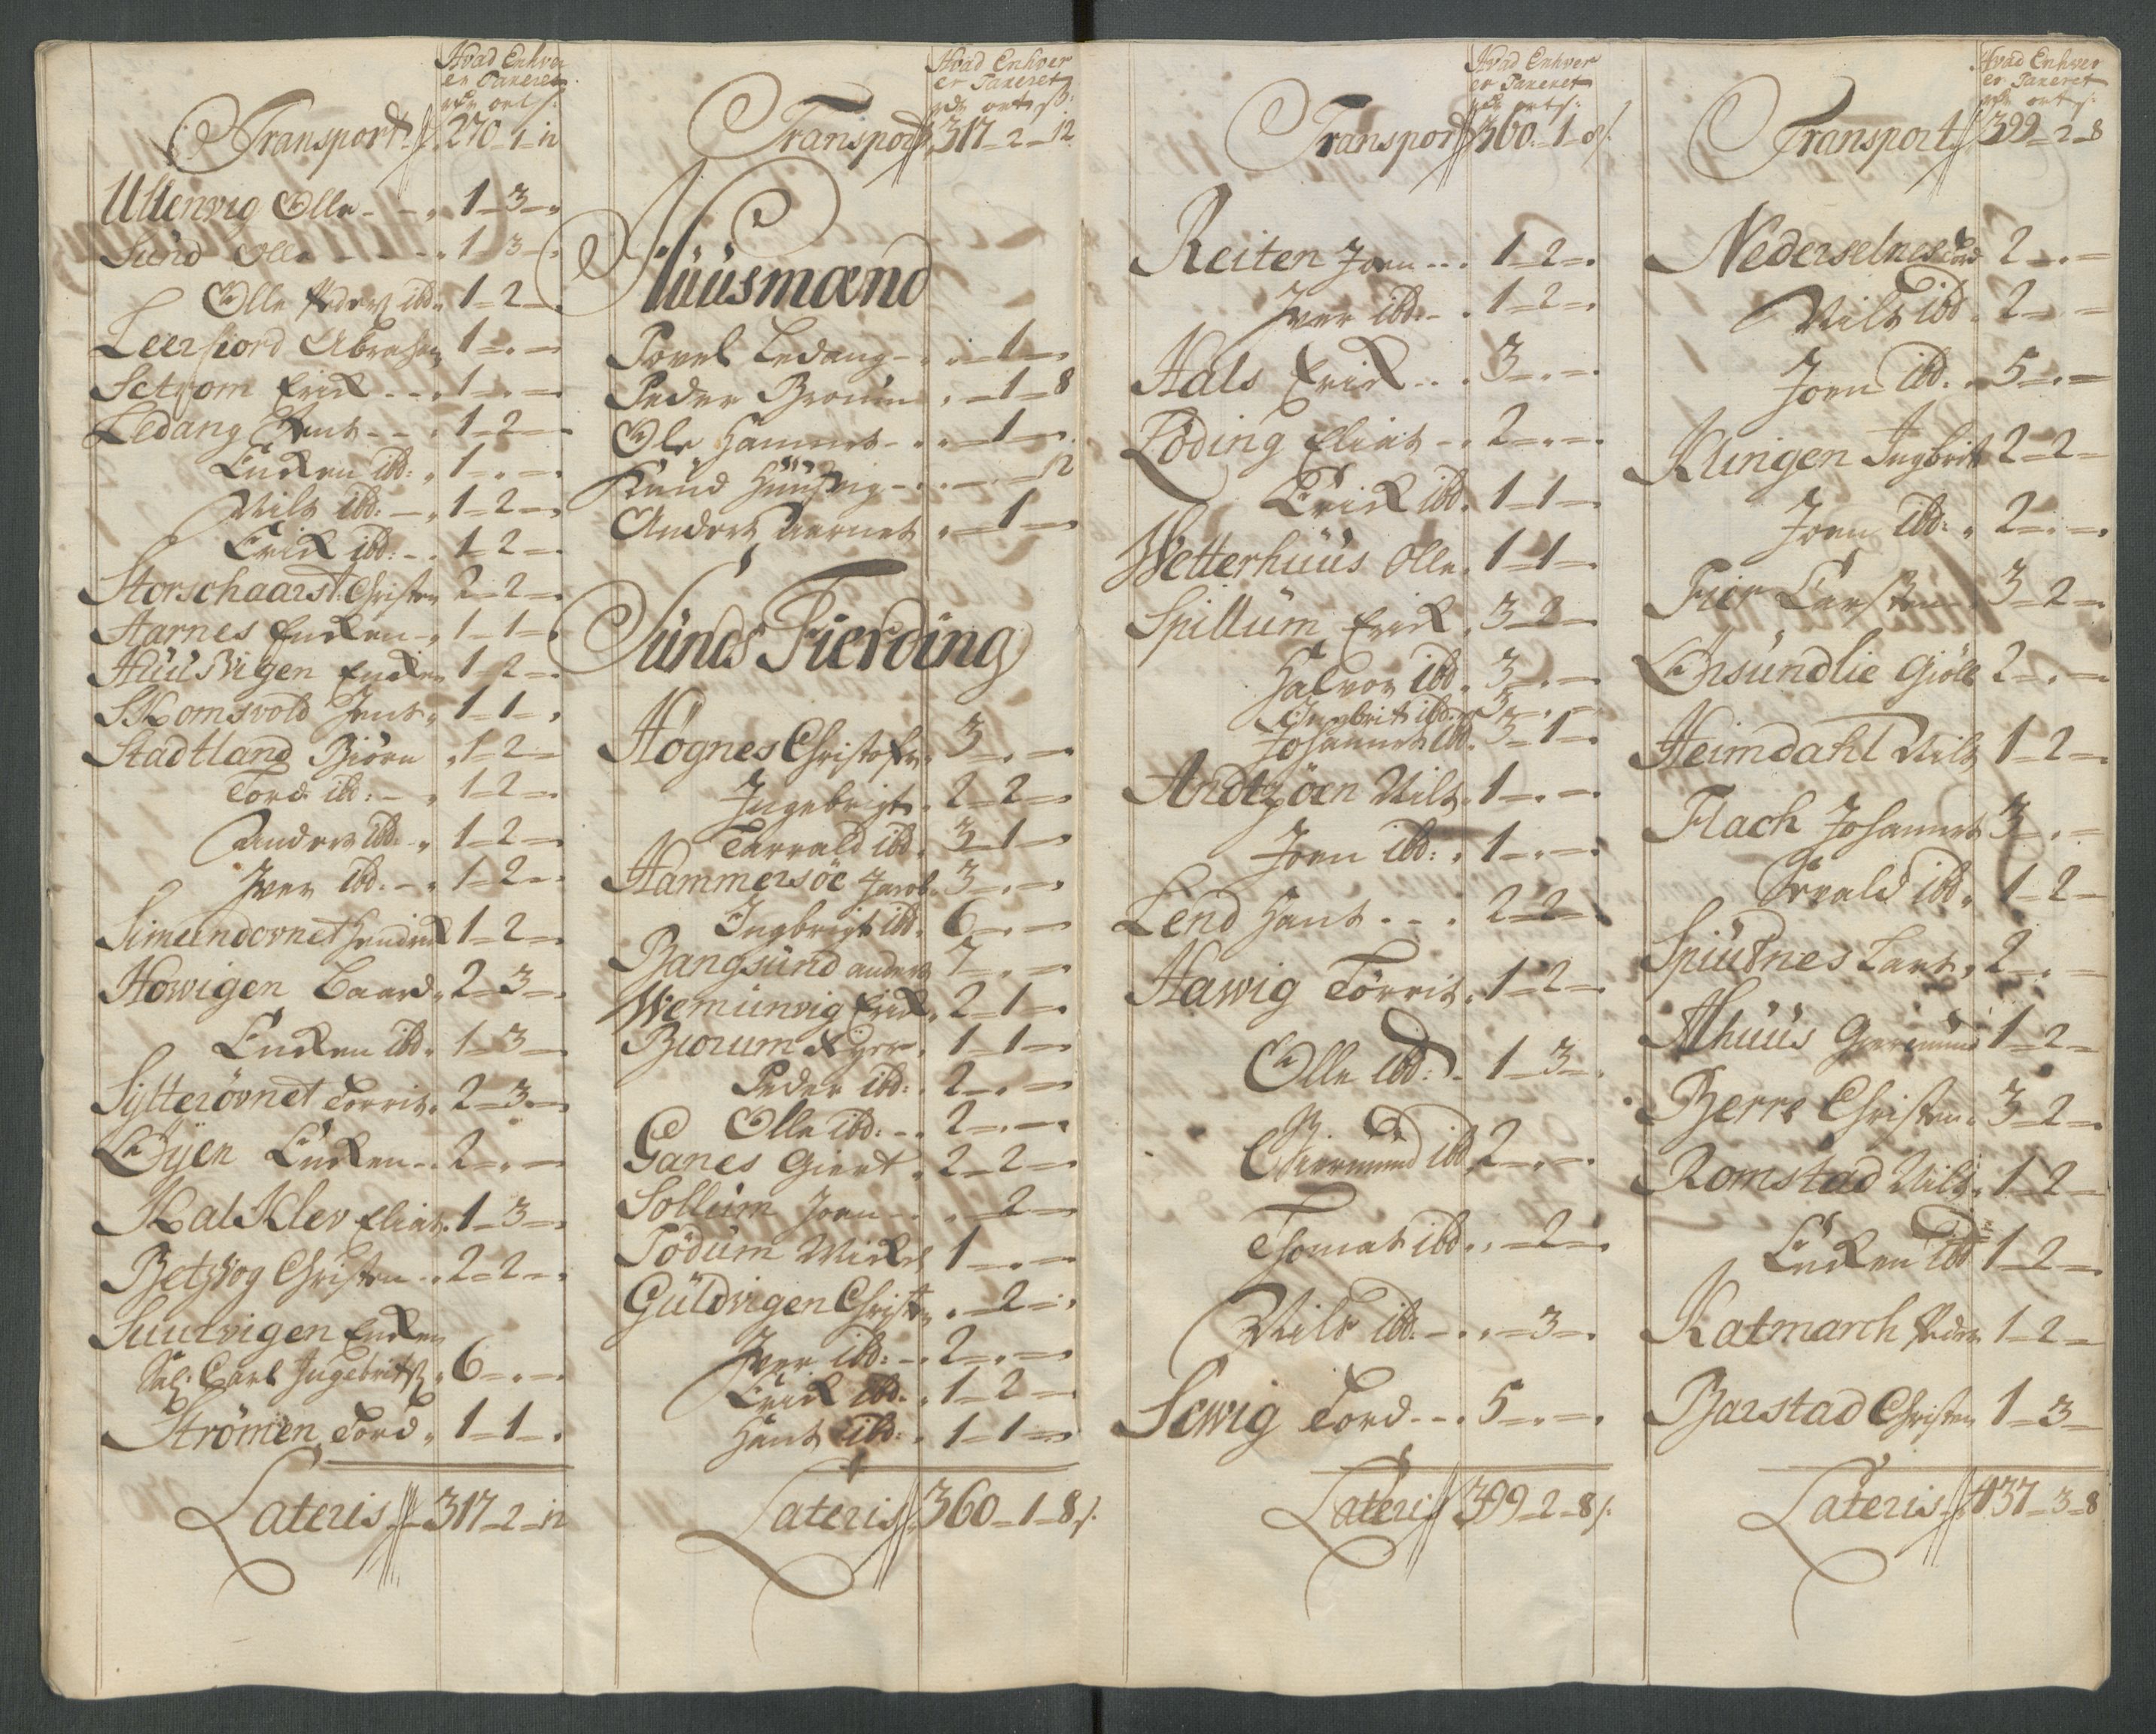 Hvad Enhver
er Taxeret
rdr ort s:
Transport 270-1-12
Ullenvig Olle 1-3-
Sund Olle 1-3-
Olle Peders ibd: 1-2-
Leerfiord Abraham 1-.-
Setrom Erick 1-.-
Ledang Jens 1-2-
Encken ibd: 1-.-
Nils ibd: 1-2-
Erick ibd: 1-2-
Storschaarst: Christen 2-2-
Aarnes Encken 1-1-
Huusvigen Encken 1-2-
Skomsvold Jens 1-1-
Stadtland Biörn 1-2-
Tord ibd: 1-2-
Anders ibd: 1-2-
Iver ibd: 1-2-
Simlendovnet Hendrick 1-2-
Howigen Baard 2-3-
Encken ibd: 1-3-
Sytterövnet Torris 2-3-
Öyen Encken 2-.-
Kalklev Elias 1-3-
Betzkog Christen 2-2-
Suulvigen Encken
Sal: Carl Ingebrits 6-.-
Strömen Tord 1-1-
Lateris 317-2-12
Hvad Enhver
er Taxeret
rdr ort s:
Transport 317-2-12
Huusmænd
Povel Ledang -1-
Peder Broum -1-8
Ole Hammer -1-
Knud Huusvig -.-12
Anders Aarnes -1-
Sunds Fierding
Högnes Christofer 3-.-
Ingebrigt 2-2-
Tarrald ibd: 3-1-
Hammersöe Jacob 3-.-
Ingbrigt ibd: 6-.-
Bangsund Anders 7-.-
Wemunvig Erick 2-1-
Biorum 1-1-
Peder ibd: 2-.-
Olle ibd: 2-.-
Ganes Giert 2-2-
Sollum Joen -2-
Södum Mickel 1-.-
Guldvigen Christen -2-
Iver ibd: 2-.-
Erick ibd: 1-2-
Hans ibd: 1-1-
Lateris 360-1-8 s.
Hvad Enhver
er Taxeret
rdr ort s:
Transport 360-1-8 s.
Reiten Joen 1-2-
Iver ibd: 1-2-
Hals Erick 3-.-
Löding Elias 2-.-
Erick ibd: 1-1-
Wetterhuus Olle 1-1-
Spillum Erick 3-2-
Halvor ibd: 3-.-
Ingbrit ibd: 3-.-
Johannes ibd: 3-1-
Andtzöen Nils 1-.-
Joen ibd: 1-.-
Lend Hans 2-2-
Hawig Törris 1-2-
Olle ibd: 1-3-
Giermund ibd 2-.-
Thomas ibd: -2-
Nils ibd: -3-
Sewig Tord 5-.-
Lateris 399-2-8 s.
Hvad Enhver
er Taxeret
rdr ort s:
Transport 399-2-8
Nederselnes Tord 2-.-
Nils ibd 2-.-
Joen ibd: 5-.-
Klingen Ingbrit 2-2-
Joen ibd: 2-.-
Fier Carsten 3-2-
Ersundlie Giöll 2-.-
Heimdahl Nils 1-2-
Flach Johannes 3-.-
Arvald ibd: 1-2-
Spiutnes Lars 2-.-
Ahuus Giermund 1-2-
Berre Christen 3-2-
Romstad Nils 1-2-
Encken ibd 1-2-
Katmarch Peder 1-2-
Barstad Christen 1-3-
Lateris 437-3-8